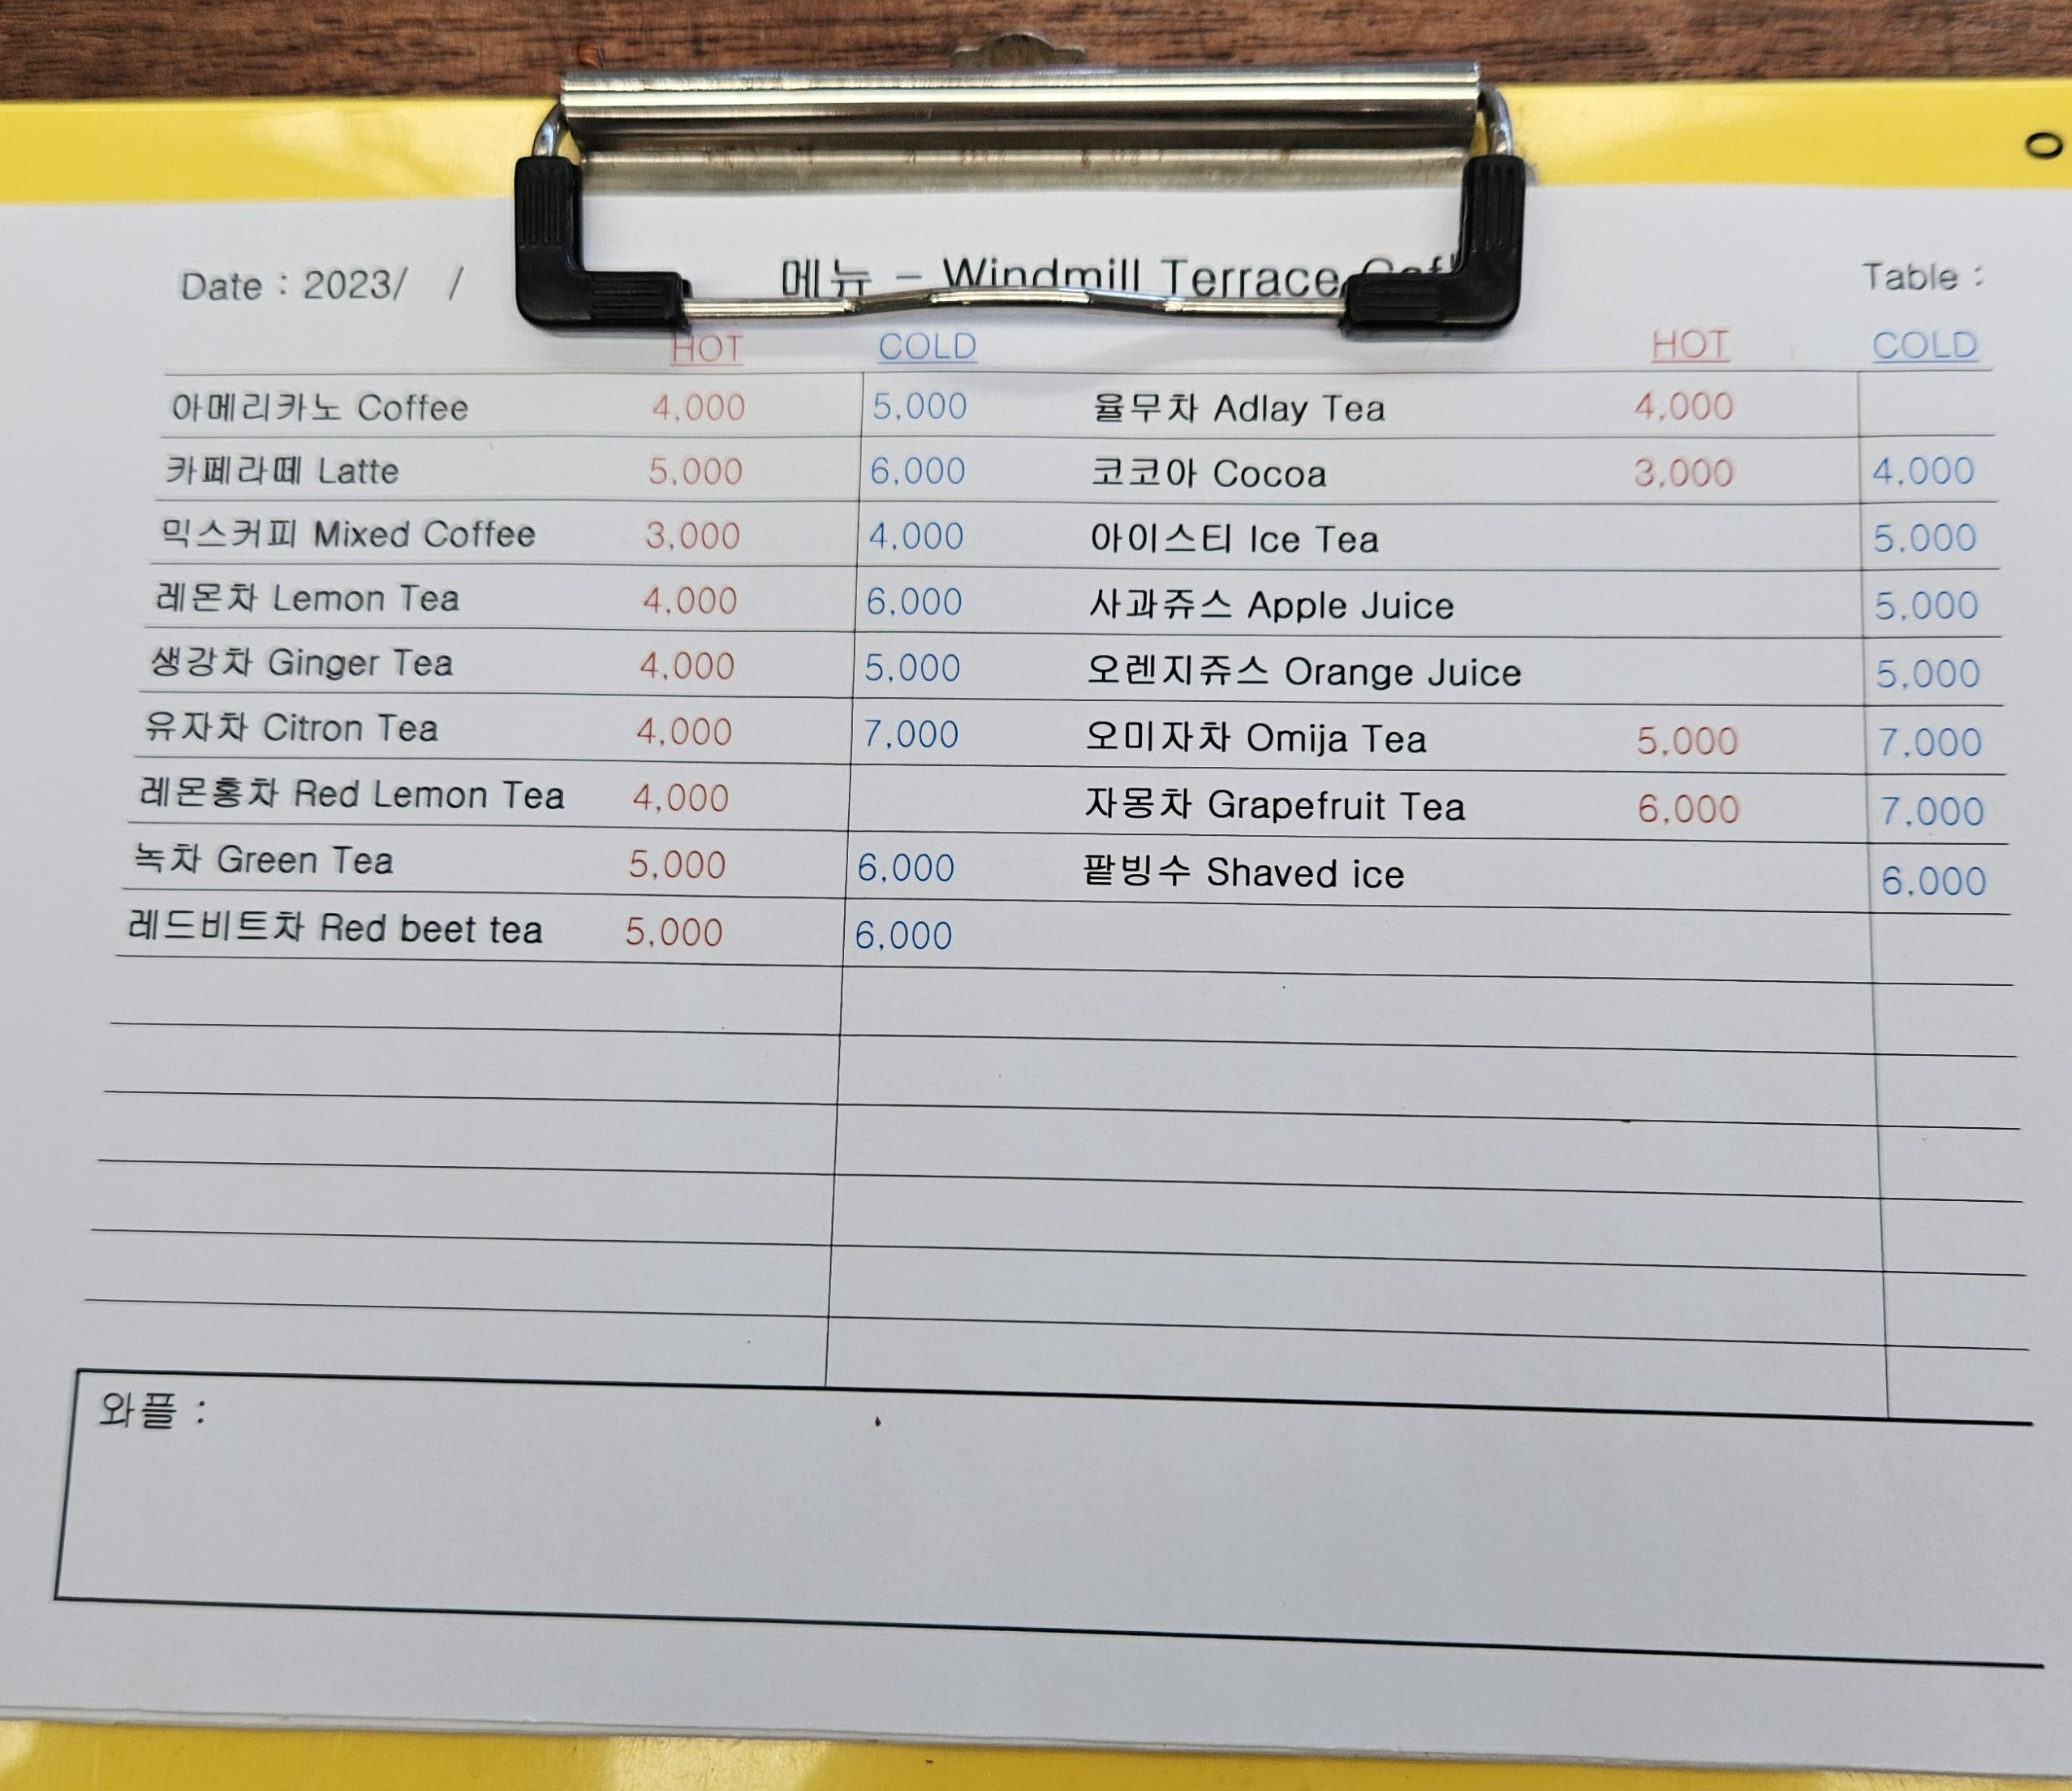 Date : 2023/ /
메뉴 - Windmill Terrace
Table :
HOT COLD HOT COLD
아메리카노 Coffee 4,000 5,000 율무차 Adlay Tea 4,000
카페라떼 Latte 5,000 6,000 코코아 Cocoa 3,000 4,000
믹스커피 Mixed Coffee 3,000 4,000 아이스티 Ice Tea 5,000
레몬차 Lemon Tea 4,000 6,000 사과쥬스 Apple Juice 5,000
생강차 Ginger Tea 4,000 5,000 오렌지쥬스 Orange Juice 5,000
유자차 Citron Tea 4,000 7,000 오미자차 Omija Tea 5,000 7,000
레몬홍차 Red Lemon Tea 4,000 자몽차 Grapefruit Tea 6,000 7,000
녹차 Green Tea 5,000 6,000 팥빙수 Shaved ice 6,000
레드비트차 Red beet tea 5,000 6,000
와플 :